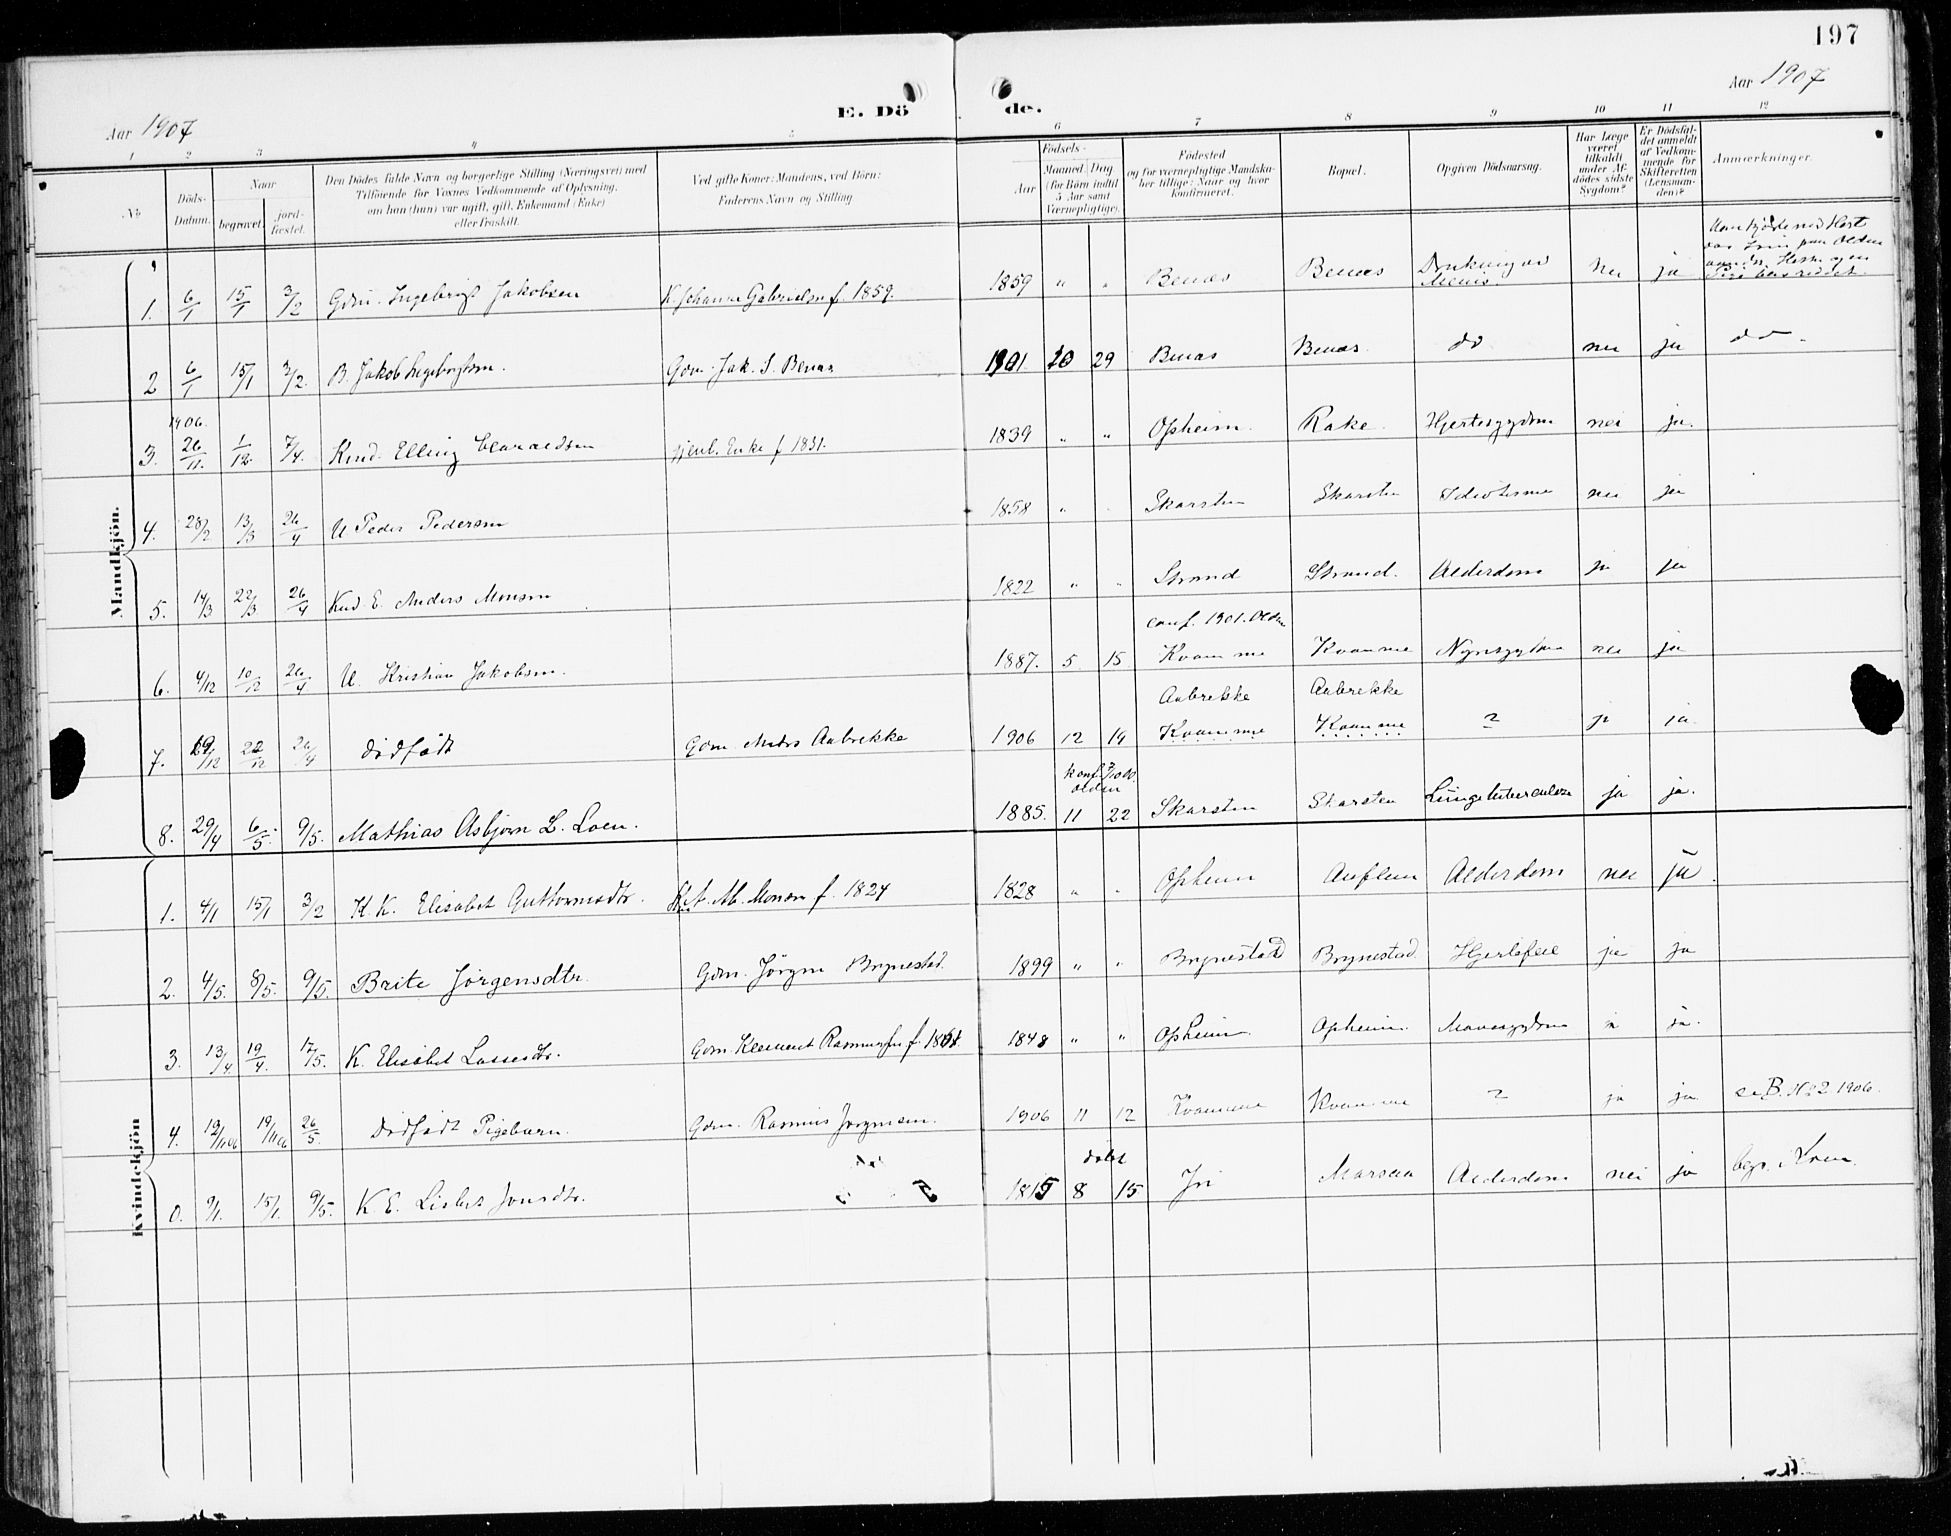 197
Aar 1907
E. Dö
de.
Aar 1907
1 2 3 4 5 6 7 8 9 10 11 12
No
Döds-Datum.
Naar
begravet.
jord-fæstet.
Den Dödes fulde Navn og borgerlige Stilling (Næringsvei) med
Tilföiende for Voxnes Vedkommende af Oplysning,
om han (hun) var ugift, gift, Enkemand (Enke)
eller fraskilt.
Ved gifte Koner: Mandens, ved Börn:
Faderens Navn og Stilling.
Födsels-
Aar
Maaned. Dag
(for Börn indtil
5 Aar samt
Værnepligtige).
Födested
og for værnepligtige Mandsku-
ber tillige: Naar og hvor
konfirmeret.
Bopæl.
Opgiven Dödsaarsag.
Har Læge
været
tilkaldt
under Af-
dødes sidste
Sygdom?
Er Dödsfal-
det anmeldt
af Vedkom-
mende for
Skifteretten
(Lensman-
den)?
Anmærkninger.
Mandkjön.
1. 6/1 15/1 3/2 Gdm. Ingebrigt Jakobsen K. Johanne Gabrielsen f. 1859. 1859 " " Benæs Benæs nei ja
2 6/1 15/1 3/2. B. Jakob Ingebrigtsen. Gdm. Jak. I. Benæs 1901 10 29 Benæs Benæs. do nei ja do.
1906.
3. 26/11. 1/12. 7/4. Kmd. Elling f 1831. 1839 " " Opheim. Rake. Hjertesygdom nei ja.
4. 28/2 13/3 26/4 U Peder Pedersen 1858 " " Skarsten Skarsten Idiotisme nei ja
5. 14/3 22/3 26/4 E. Anders Monsen 1822 " " Strand Strand. Alderdom ja ja
conf. 1901. Olden
6. 4/12 10/12 26/4 U. Kristian Jakobsen. 1887. 5. 15 Kvamme Kvamme Nyresygdom nei ja
Aabrekke Aabrekke
7. 19/12 22/12 26/4 dødfødt Gdm. Anders Aabrekke 1906 12 19 Kvamme Kvamme ? ja ja.
konf.
Olden
8. 29/4 6/5. 9/5. Mathias Asbjørn L. Loen. 1885. 11 22 Skarsten Skarsten Lungetuberculose ja ja.
Kvindekjön
1. 4/1 15/1 3/2 K.K. Elisabet Guttormsdtr. Monsen f. 1824 1828 " " Opheim Auflem Alderdom nei ja.
2. 4/5. 8/5. 9/5. Brite Jörgensdtr. Gdm. Jörgen Brynestad. 1899 " " Brynestad Brynestad. Hjertefeil ja ja
3. 13/4 19/4. 17/5. K. Elisabet Lassesdtr. Gdm. Klement Rasmussen f. 1848 " " Opheim. Opheim. Mavesygdom ja ja.
4. 12/11 06 19/11 06 26/5. Dødfødt Pigebarn. Gdm. Rasmus Jørgensen. 1906 11 12 Kvamme Kvamme ? ja ja se B. No 2 1906.
døbt
0. 9/1. 15/1. 9/5. K. E. Lisbet Jonsdtr. 1815 8 15 Jri Marsaa Alderdom nei ja begr. i Loen.